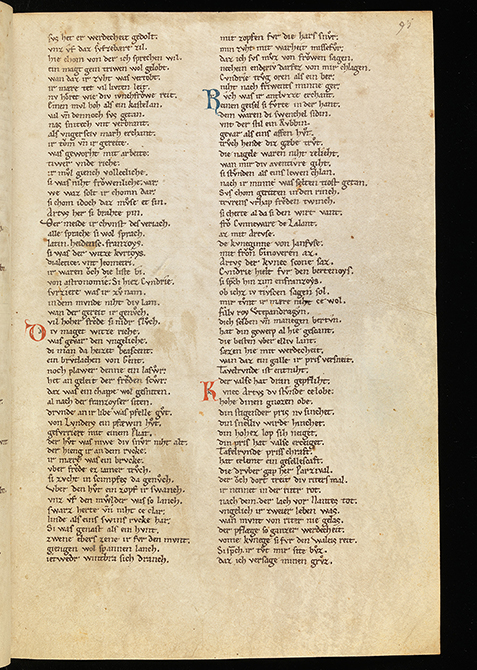 95
sus het er werdecheit gedolt.
unz uf daz sufzebære zil.
hie chom von der ich sprechen wil.
ein magt gein triwen wol gelobt.
wan daz ir zuht was vertobt.
ir mære tet vil luten leit.
nu hœret wie div iunchfrowe reit.
einen mul hoh als ein kastelan.
val unt dennoch sus getan.
nassnitech unt verbrant.
als ungerschiv march erchant.
ir zoum unt ir gereite.
was geworht mit arbeite.
tiwer unde riche.
ir mul giench volleclîche.
si was niht frowenliche var.
we waz solt ir chomn dar.
si chom idoch daz muose et sin.
Artus her si brahte pin.
Der meide ir chvnst des veriach.
alle sprache si wol sprach.
latin. heidensc. franzoys.
si was der witze kvrtoys.
dialetice. unt Jeometri.
ir waren och die liste bi.
von astronomie. Si hiez Cvndrie.
svrziere was ir zvnam.
in dem munde niht div lam.
wan der geriet ir genvch.
vil hoher frœde si nidr slvch.
Div maget witze riche.
was gevar den ungeliche.
di man da heizet beascent.
ein brvtlachen von Gent.
noch plawer denne ein lasvr.
het an geleit der frœden scvr.
daz was ein chappe wol gesniten.
al nach der franzoyser siten.
drvnde an ir libe was pfelle gvt.
von Lvnders ein pfæwin hvt.
gefurriert mit einem plialt.
der hvt was niwe div snvr niht alt.
der hieng ir an dem rvcke.
ir mære was ein brvcke.
vber frœde ez iamer trvch.
si zvcht in scimpfes da genvch.
Vber den hvt ein zopf ir swanch.
unz vf den mvl der was so lanch.
swarz herte unt niht ze clar.
linde als eins swins rvcke har.
Si was genast als ein hvnt.
zwene ebers zene ir fvr den mvnt.
giengen wol spannen lanch.
iewedr wintbra sich dranch.
mit zopfen fvr die harsnvr.
min zvht mit warheit missefvr.
daz ich sus mvz von frowen sagen.
nechein endriv darf ez von mir chlagen.
Cvndrie trvg oren als ein ber.
niht nach friwnts minne ger.
Rvch was ir antlvtze erchant.
einen geisel si fvrte in der hant.
dem waren di swenchel sidin.
unt der stil ein Rvbbin.
gevar als eins affen hvt.
trvch hende diz gebe trvt.
die nagele waren niht ze lieht.
wan mir div aventivre giht.
si stvnden als eins lewen chlan.
nach ir minne was selten tiost getan.
Sus chom geriten in den rinch.
trvrens vrhap frœden twinch.
si cherte al da si den wirt vant.
fro Cvnneware de Lalant.
az mit Artvse.
de kvneginne von Janfvse.
mit fron Ginoveren az.
Artvs der kvnec scone saz.
Cvndrie hielt fvr den bertenoys.
si sprach hin zim en franzoys.
ob ichz iv tivscen sagen sol.
mir tvnt ir mære niht ze wol.
fily roy Vtepandragvn.
dich selben unt manegen bertvn.
hat din gewerp al hie gescant.
die besten vber elliv lant.
sæzen hie mit werdecheit.
wan daz ein galle ir pris versneit.
Tavelrvnde ist entniht.
der valsc hat dran gepflicht.
Kunec Artvs dv stvnde ze lobe.
hohe dinen gnozen obe.
din stigender pris nv sinchet.
din snelliv wirde hinchet.
din hohez lop sih neiget.
din pris hat valsc erzeiget.
Tafelrvnde pris chraft.
hat erlemt ein gesellescaft.
die drvber gap her Parzival.
der och dort treit div riters mal.
ir nennet in der riter rot.
nach dem. der lach vor Nantes tot.
ungelich ir zweier leben was.
wan mvnt von riter nie gelas.
der pflæge so ganzer werdecheit.
vome kvnege si fvr den waleis reit.
Si sprach. ir tvt mir site bvz.
daz ich versage minen grvz.